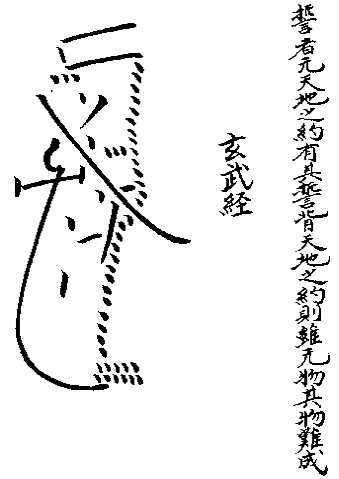 誓者元天地之約有其誓背天地之約則雖元物其物難成
玄武経